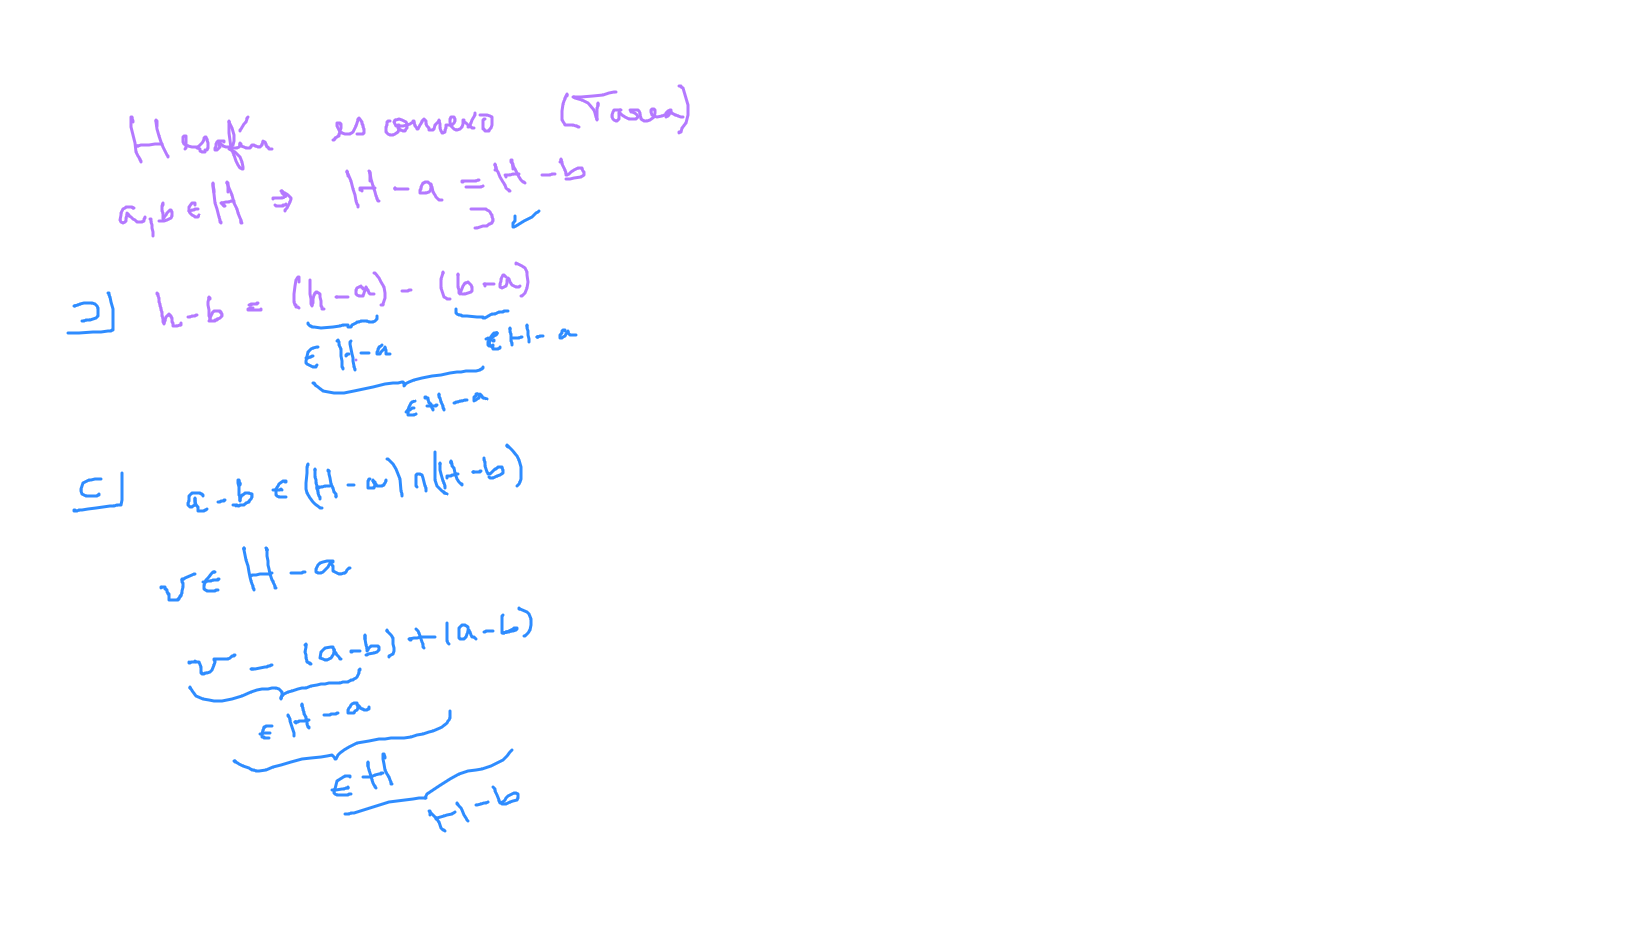 H es afín es convexo (Tarea)
a, b ∈ H ⇒ H - a = H - b
⊃ ✓
⊃] h - b = (h - a) - (b - a)
∈ H - a ∈ H - a
∈ H - a
⊂] a - b ∈ (H - a) ∩ (H - b)
v ∈ H - a
v - (a - b) + (a - b)
∈ H - a
∈ H
H - b